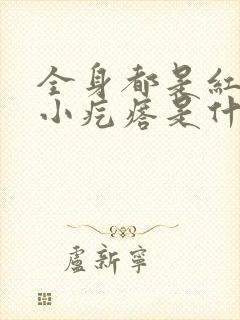 全身都是紅
小疙瘩是什
盧新寧